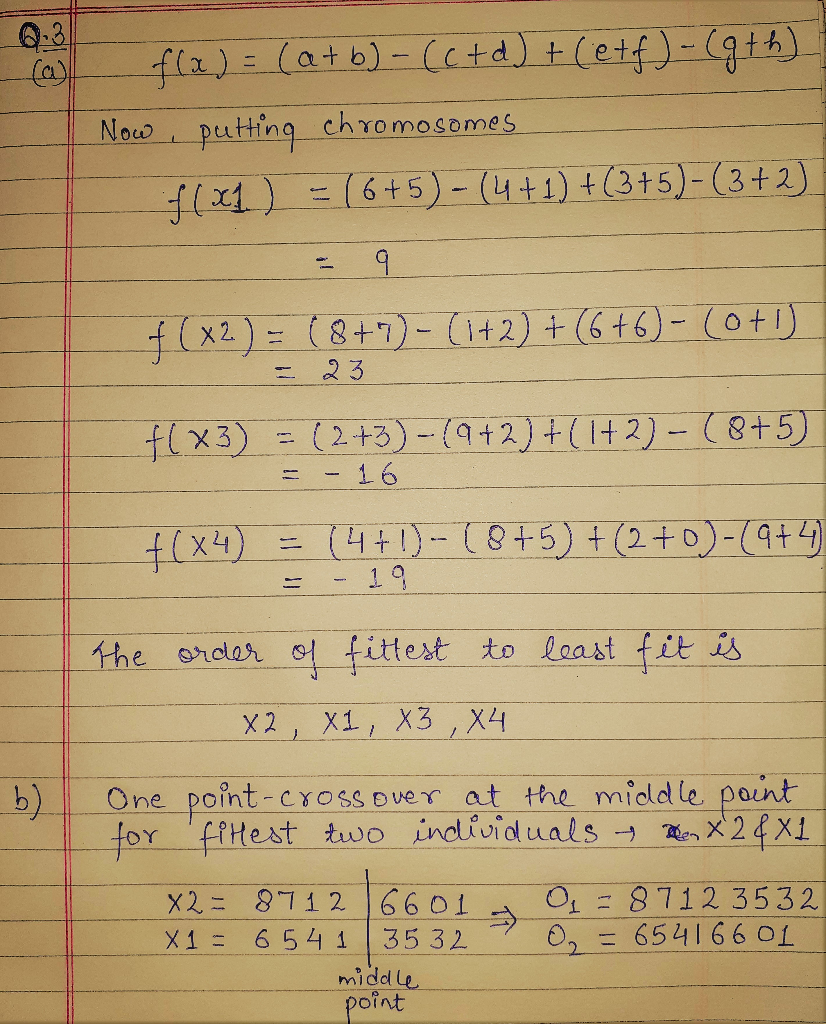 Q.3
(a) f(x) = (a+b) - (c+d) + (e+f) - (g+h)
Now, putting chromosomes
f(x1) = (6+5) - (4+1) + (3+5) - (3+2)
= 9
f(x2) = (8+7) - (1+2) + (6+6) - (0+1)
= 23
f(x3) = (2+3) - (9+2) + (1+2) - (8+5)
= - 16
f(x4) = (4+1) - (8+5) + (2+0) - (9+4)
= - 19
The order of fittest to least fit is
X2, X1, X3, X4
b) One point-crossover at the middle point
for fittest two individuals → X2 & X1
X2 = 8712 | 6601 ⇒ O1 = 87123532
X1 = 6541 | 3532 O2 = 65416601
middle
point